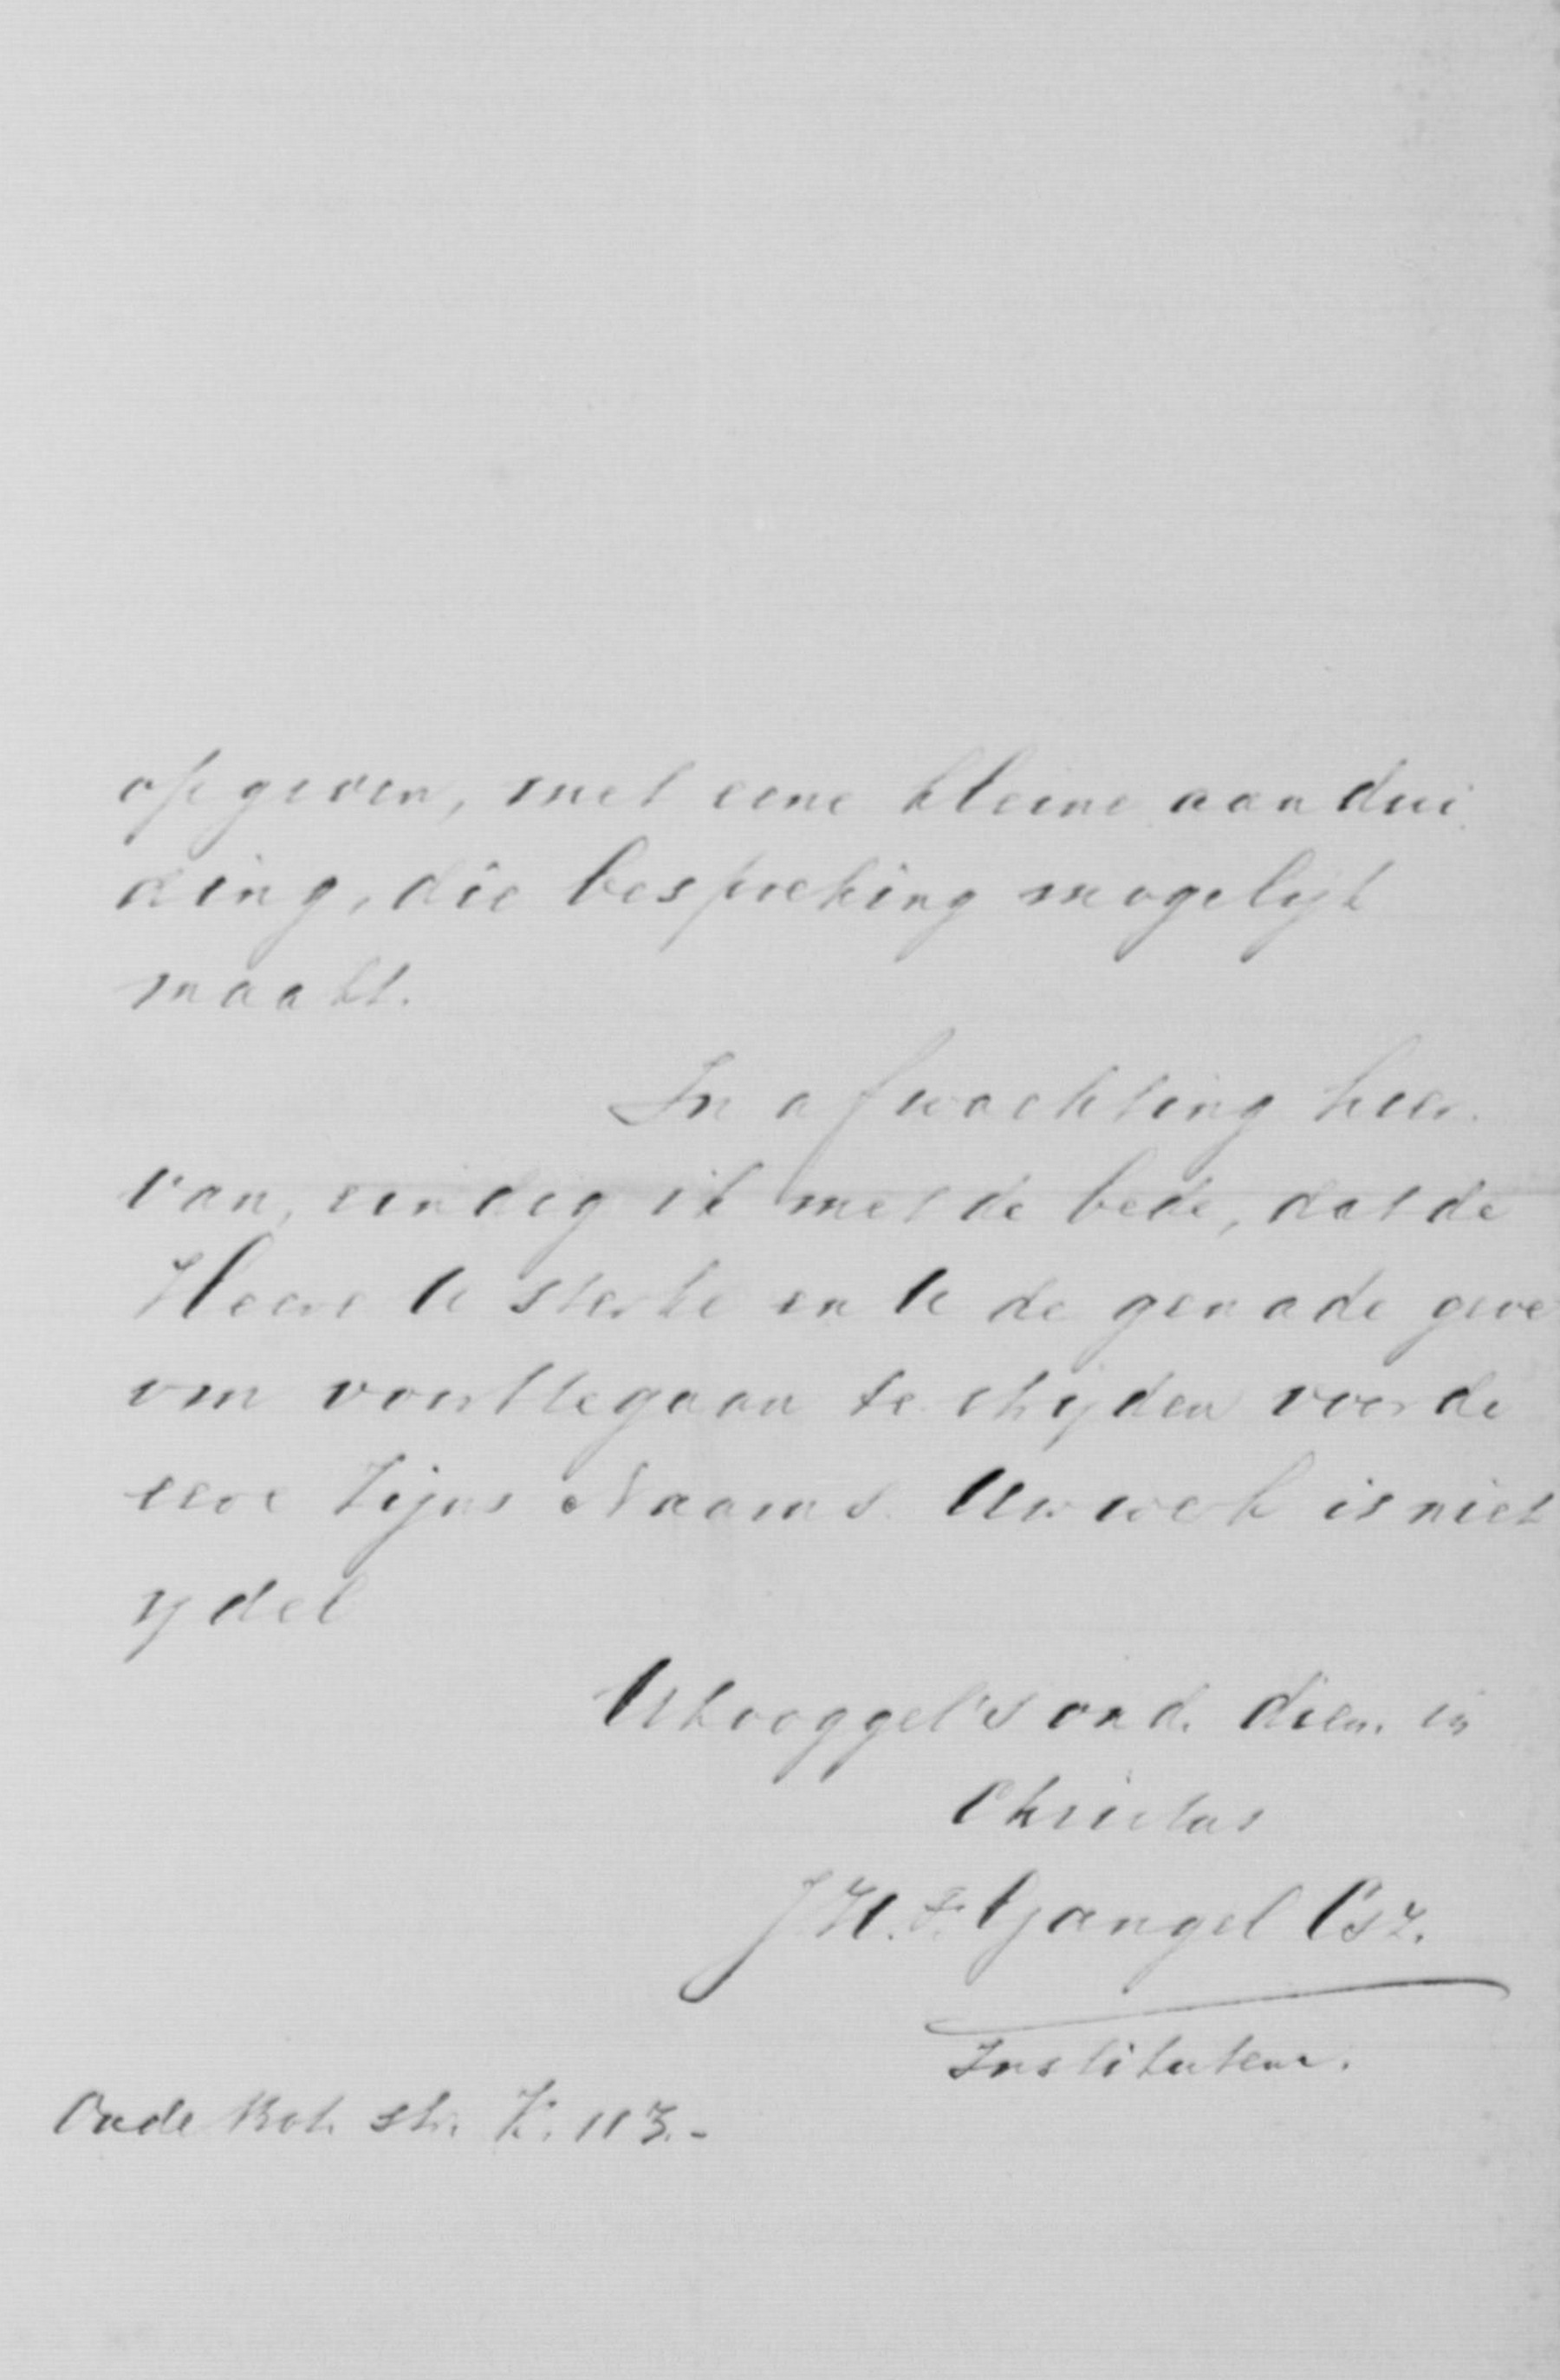 opgeven, met eene kleine aandui
ding, die bespreking mogelijk
maakt.
In afwachting hier
van, eindig ik met de bede, dat de
Heere U sterke en U de genade geve
om voorttegaan te strijden voor de
eere Zijns Naams. Uw werk is niet
ydel
UHooggel's ond. dien. in
Christus
J H. F. Gangel Csz.
Instituteur.
Oude Rot. str. K. 113.-